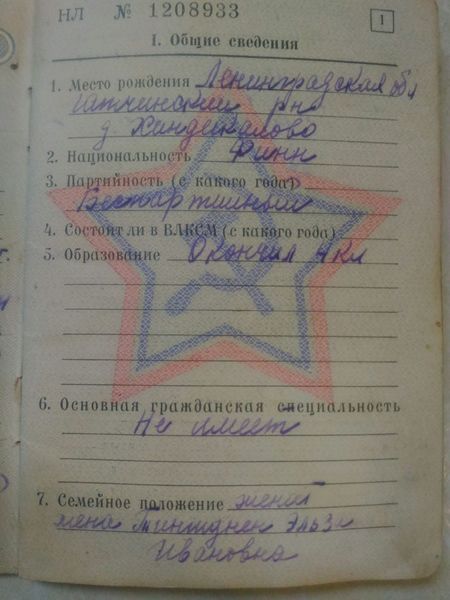 НЛ № 1208933
1
I. Общие сведения
1. Место рождения Ленинградская обл
Гатчинский р-н
д. Хиндикалово
2. Национальность Финн
3. Партийность (с какого года)
Беспартийный
4. Состоит ли в ВЛКСМ (с какого года)
5. Образование Окончил 4 кл
6. Основная гражданская специальность
Не имеет
7. Семейное положение женат
жена Эльза
Ивановна